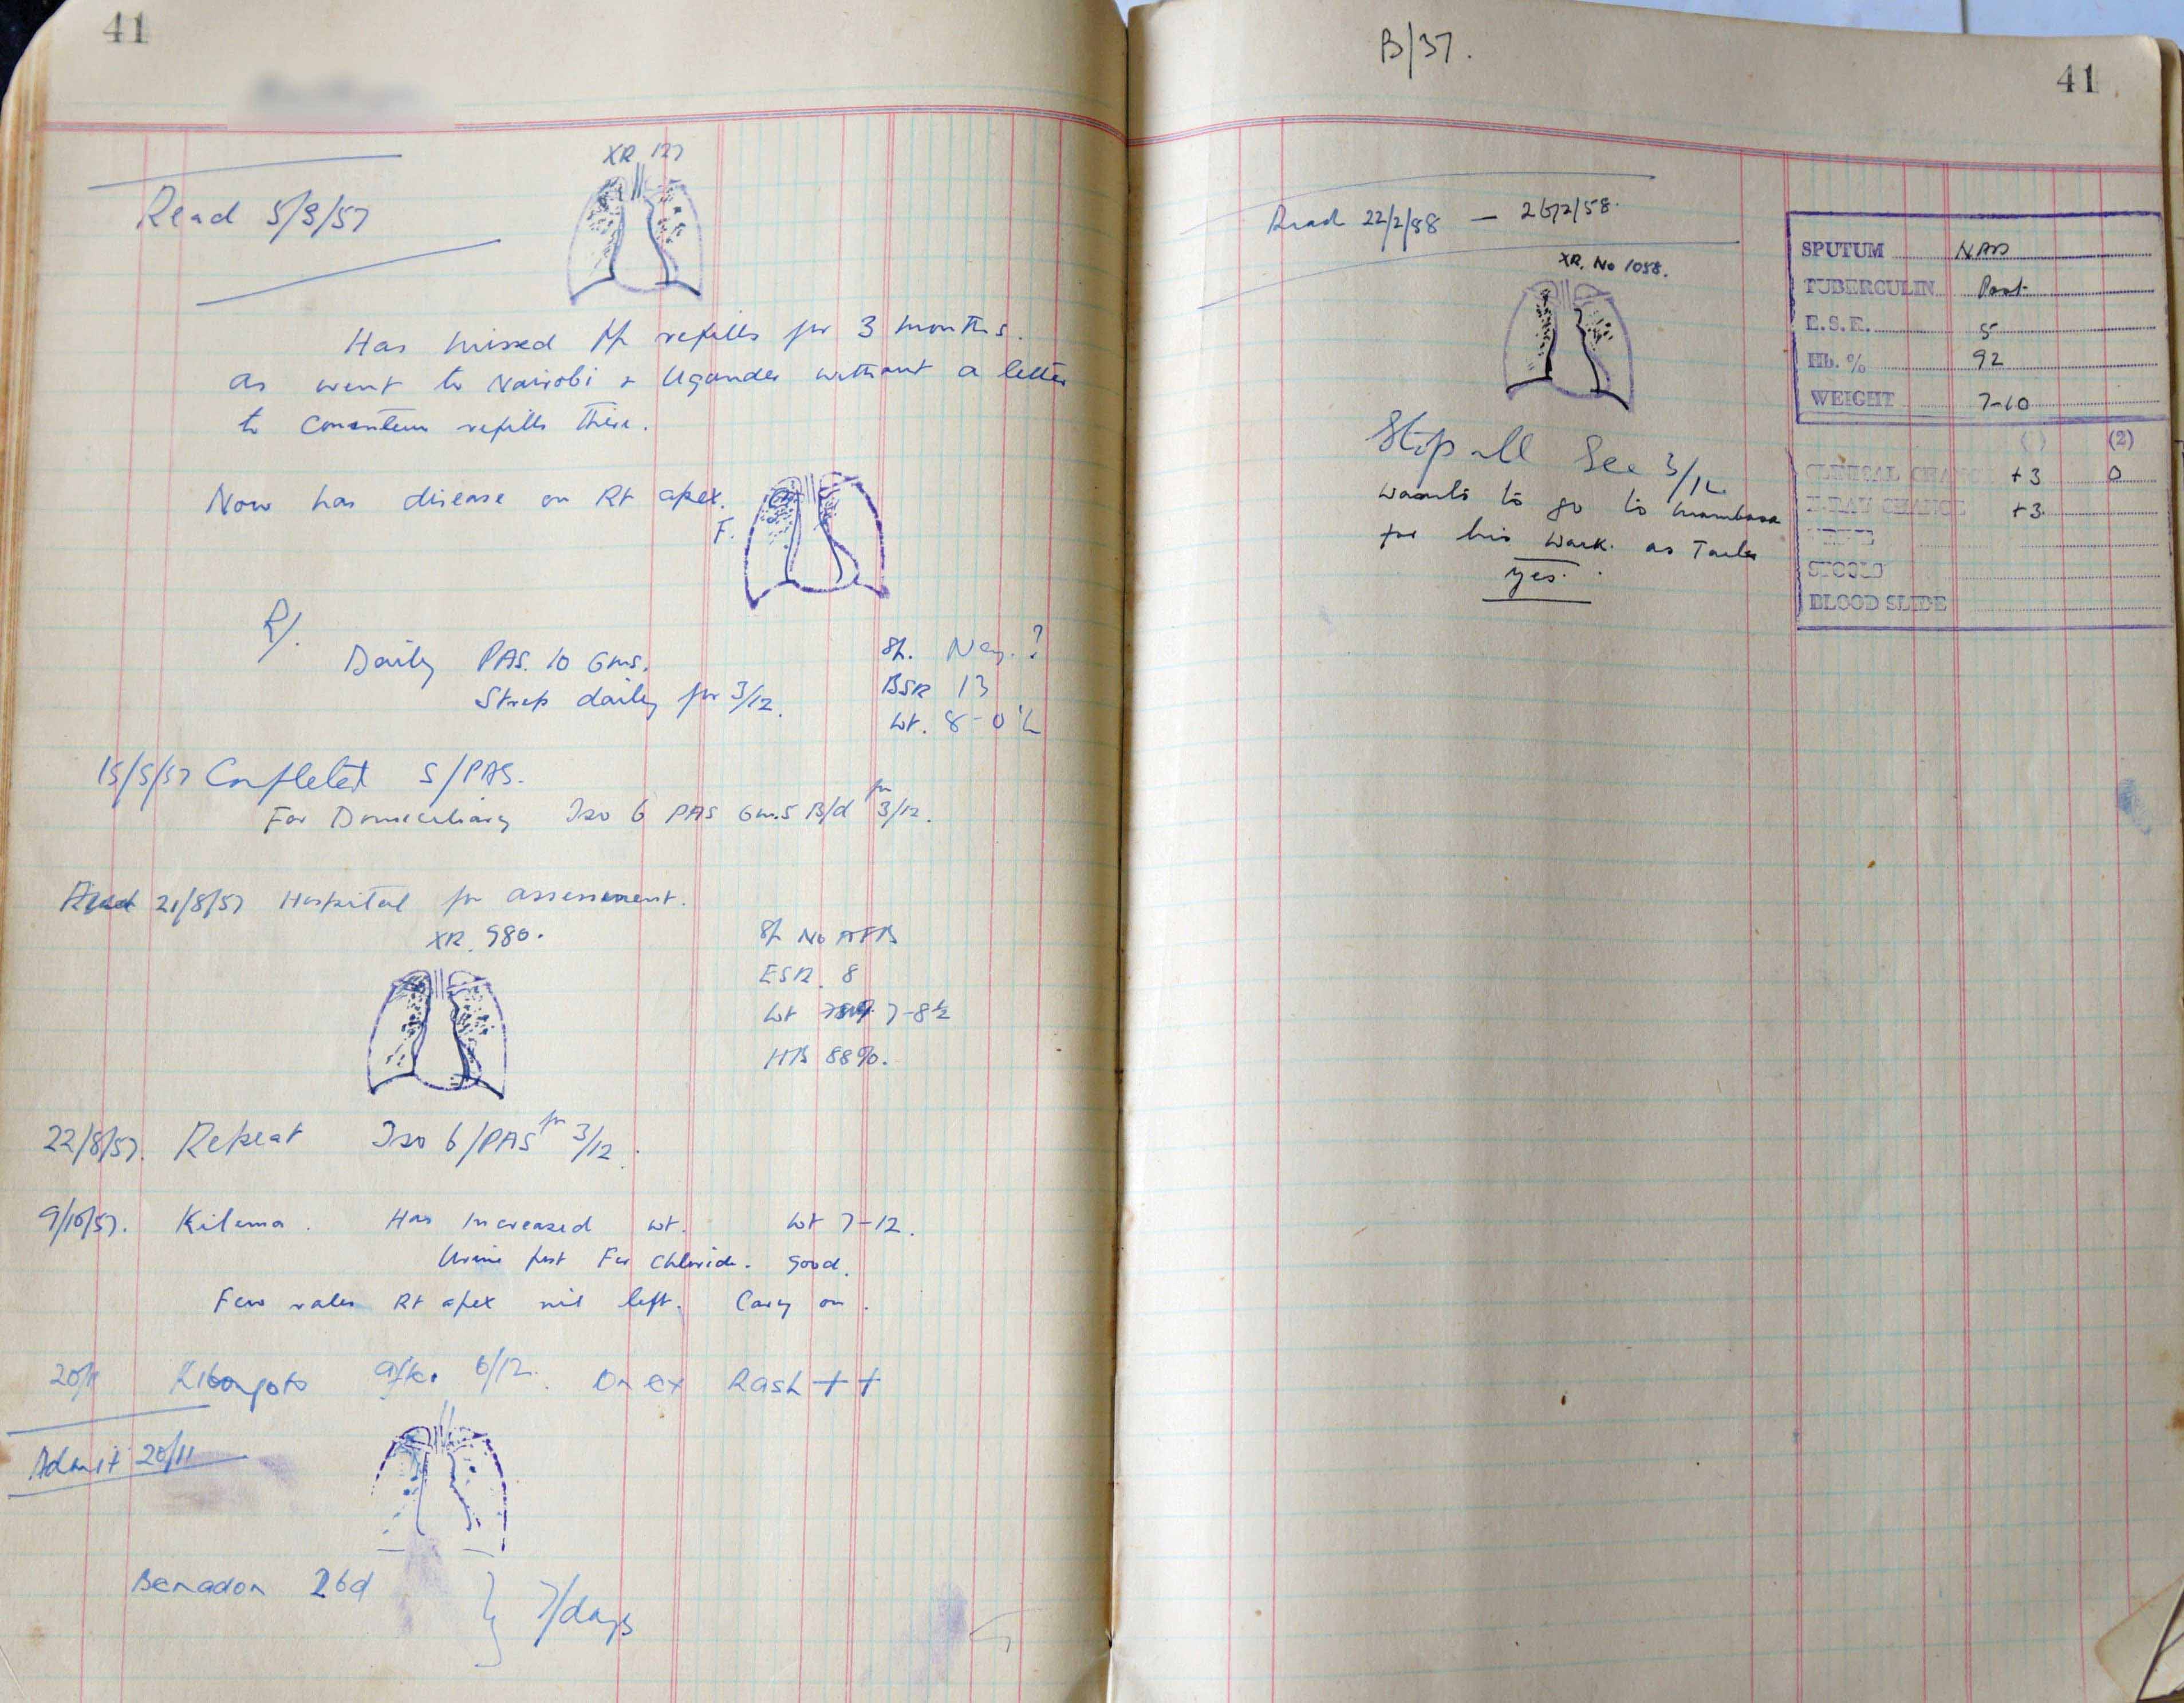 41
XR 127
Read 5/3/57
Has missed Pp refills for 3 months.
as went to Nairobi & Uganda without a letter
to refills there.
Now has disease on Rt apex.
F.
R/.
Daily PAS. 10 Gms.
Strep daily for 3/12.
Sp. Neg. ?
BSR 13
Wt. 8-0½
15/5/57 Completed S/PAS.
For Domiciliary Iso 6 PAS Gm.5 B/d for 3/12.
21/8/57 Hospital for assessment.
XR. 980.
Sp No AFB
ESR. 8
Wt 7-8½
HB 88%.
22/8/57. Repeat Iso 6/PAS for 3/12.
9/10/57. Kilema. Has increased wt. Wt 7-12.
Urine test Fer Chloride. Good.
Few rales Rt apex nil left. Carry on.
20/11 Kibongoto after 6/12. On ex Rash ++
Admit 20/11
Benadon 26d
7/days
B/37.
41
Read 22/2/58 — /2/58.
XR. No 1058.
Stop all See 3/12
wants to go to Mombasa
for his work. as Tailor
yes.
SPUTUM
TUBERCULIN Post
E.S.R. 5
Hb. % 92
WEIGHT 7-10
( ) (2)
CLINICAL CHANGE +3 0
X-RAY CHANGE +3
URINE
STOOLS
BLOOD SLIDE